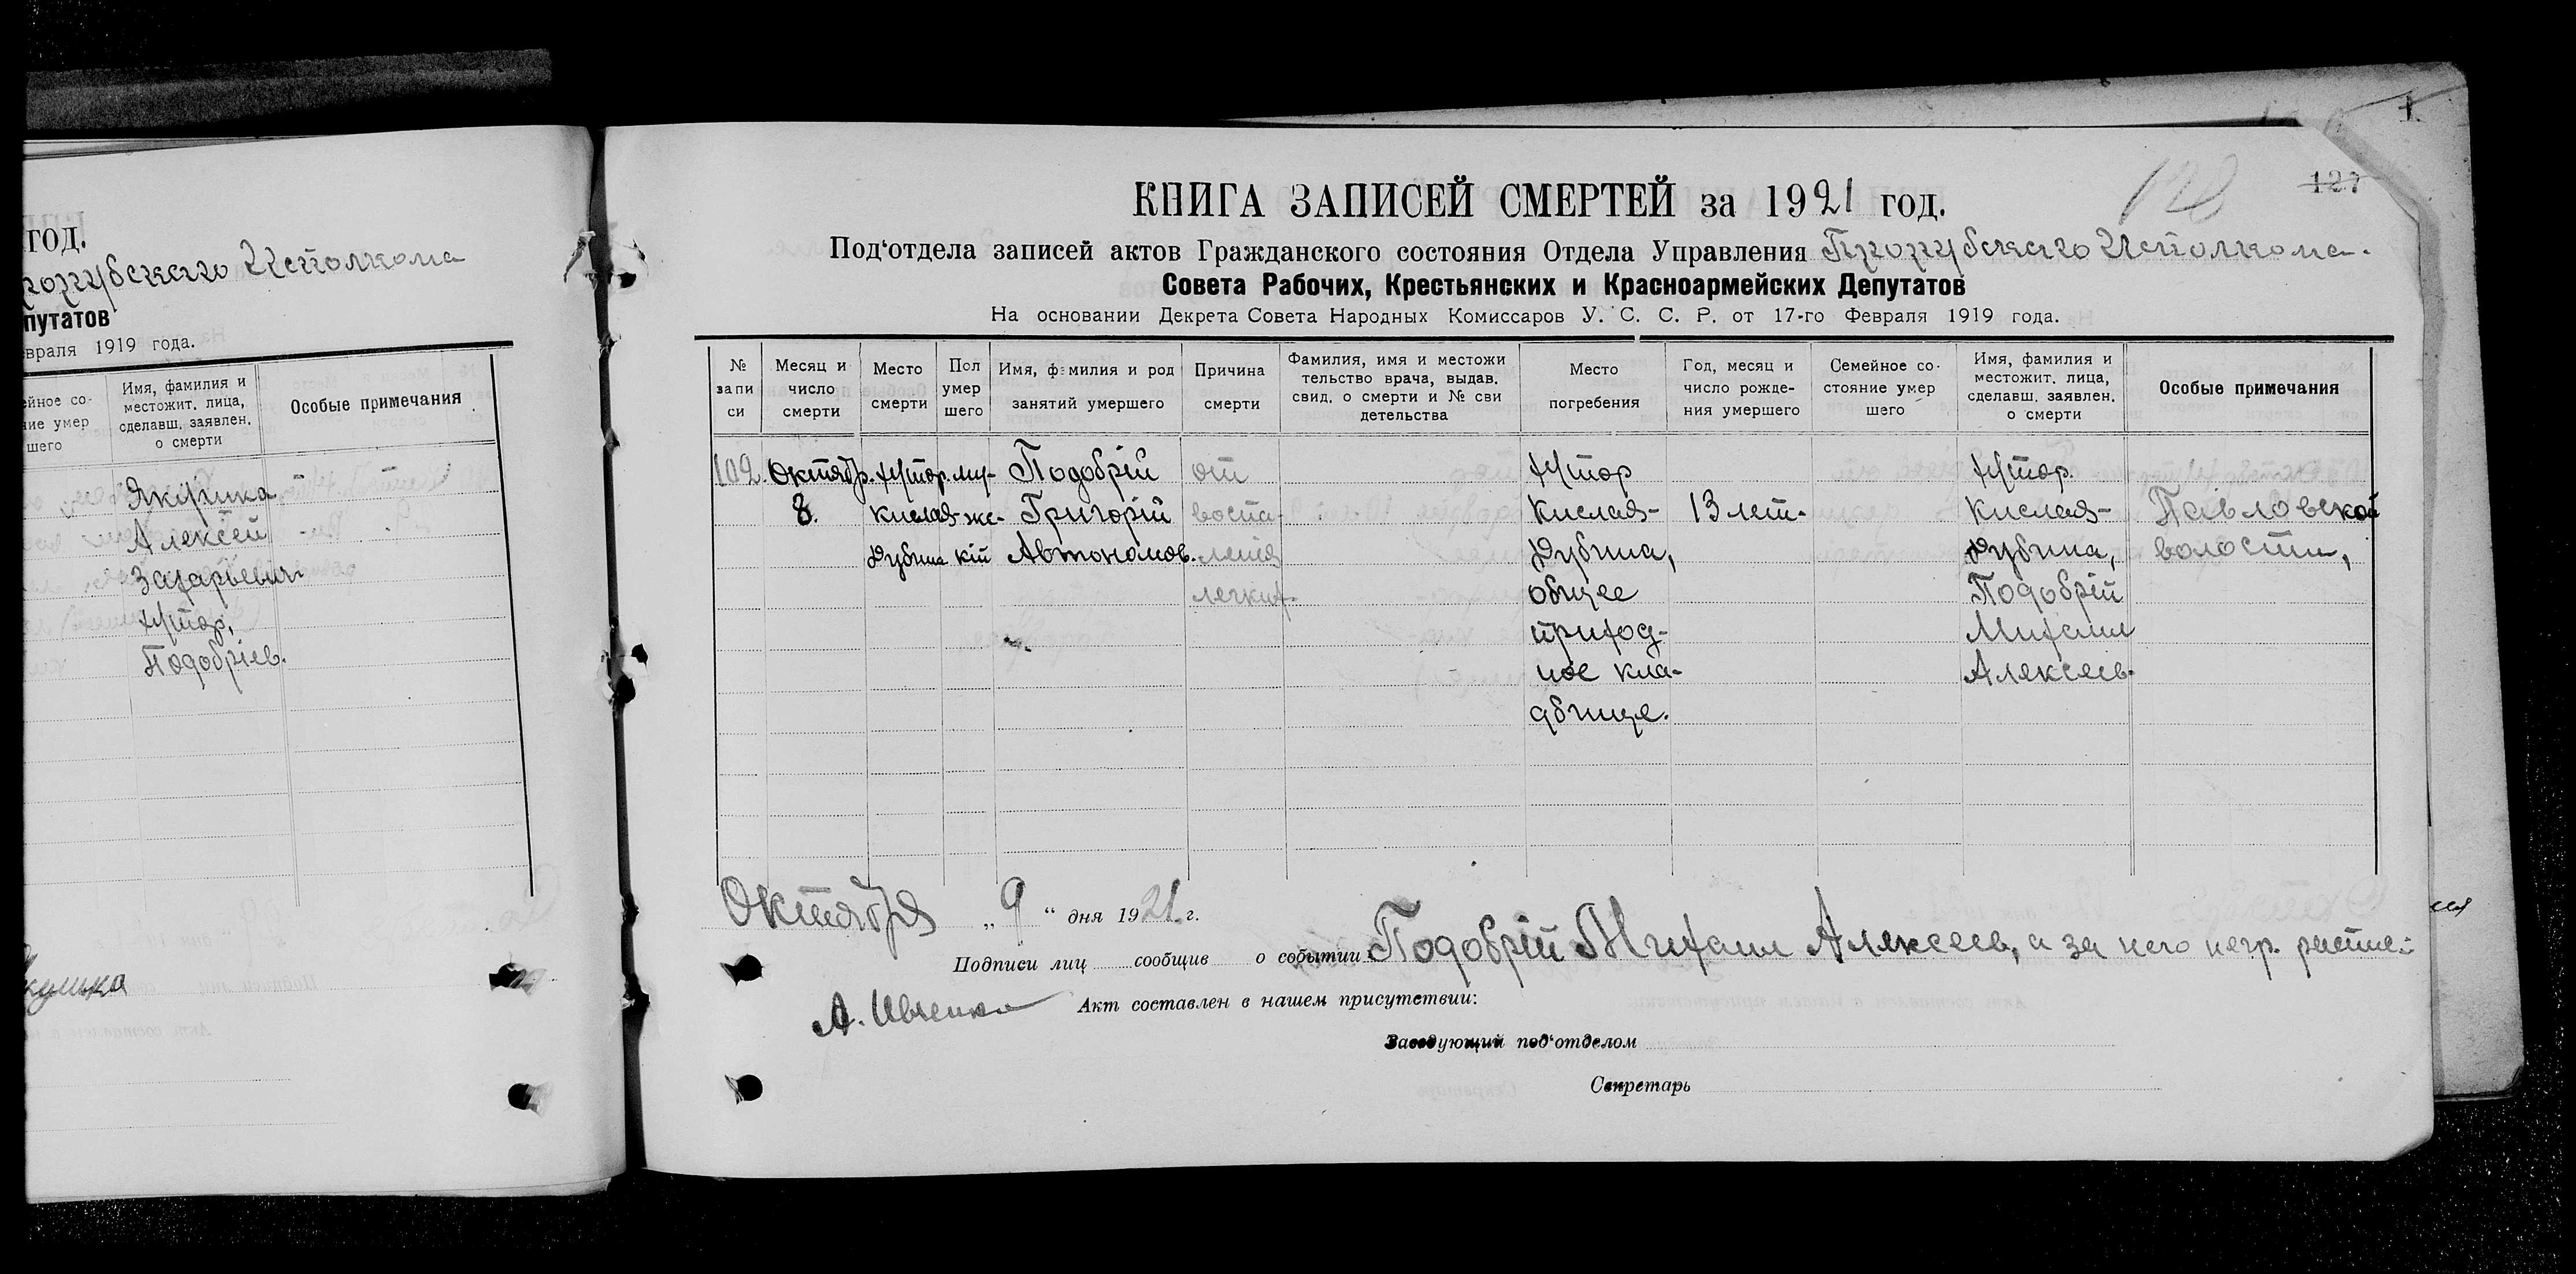 год.
Исполкома
путатов
евраля 1919 года.
ейное со-
ние умер
шего
Имя, фамилия и
местожит. лица,
сделавш. заявлен.
о смерти
Особые примечания
Якушка
Алексей
Захарьевич
хутор,
Подобріев.
1
128
127
КНИГА ЗАПИСЕЙ СМЕРТЕЙ за 1921 год.
Под'отдела записей актов Гражданского состояния Отдела Управления Прорубского Исполкома.
Совета Рабочих, Крестьянских и Красноармейских Депутатов
На основании Декрета Совета Народных Комиссаров У. С. С. Р. от 17-го Февраля 1919 года.
№
запи
си
Месяц и
число
смерти
Место
смерти
Пол
умер
шего
Имя, фамилия и род
занятий умершего
Причина
смерти
Фамилия, имя и местожи
тельство врача, выдав.
свид. о смерти и № сви
детельства
Место
погребения
Год, месяц и
число рожде-
ния умершего
Семейное со-
стояние умер
шего
Имя, фамилия и
местожит. лица,
сделавш. заявлен.
о смерти
Особые примечания
102.
Октябр.
8.
хутор.
Кислая-
Дубина
му-
жс-
кій
Подобрій
Григорій
Автономов.
от
воспа-
ления
легких
хутор
Кислая-
Дубина,
общее
приход-
ное кла-
дбище.
13 лет.
хутор.
Кислая-
Дубина,
Подобрій
Михаил
Алексеев.
Павловской
волости,
Октября „9“ дня 1921 г.
Подписи лиц сообщив о событии Подобрій Михаил Алексеев, а за него негр. распис.
А. Ивченко Акт составлен в нашем присутствии:
Заведующий под'отделом
Секретарь